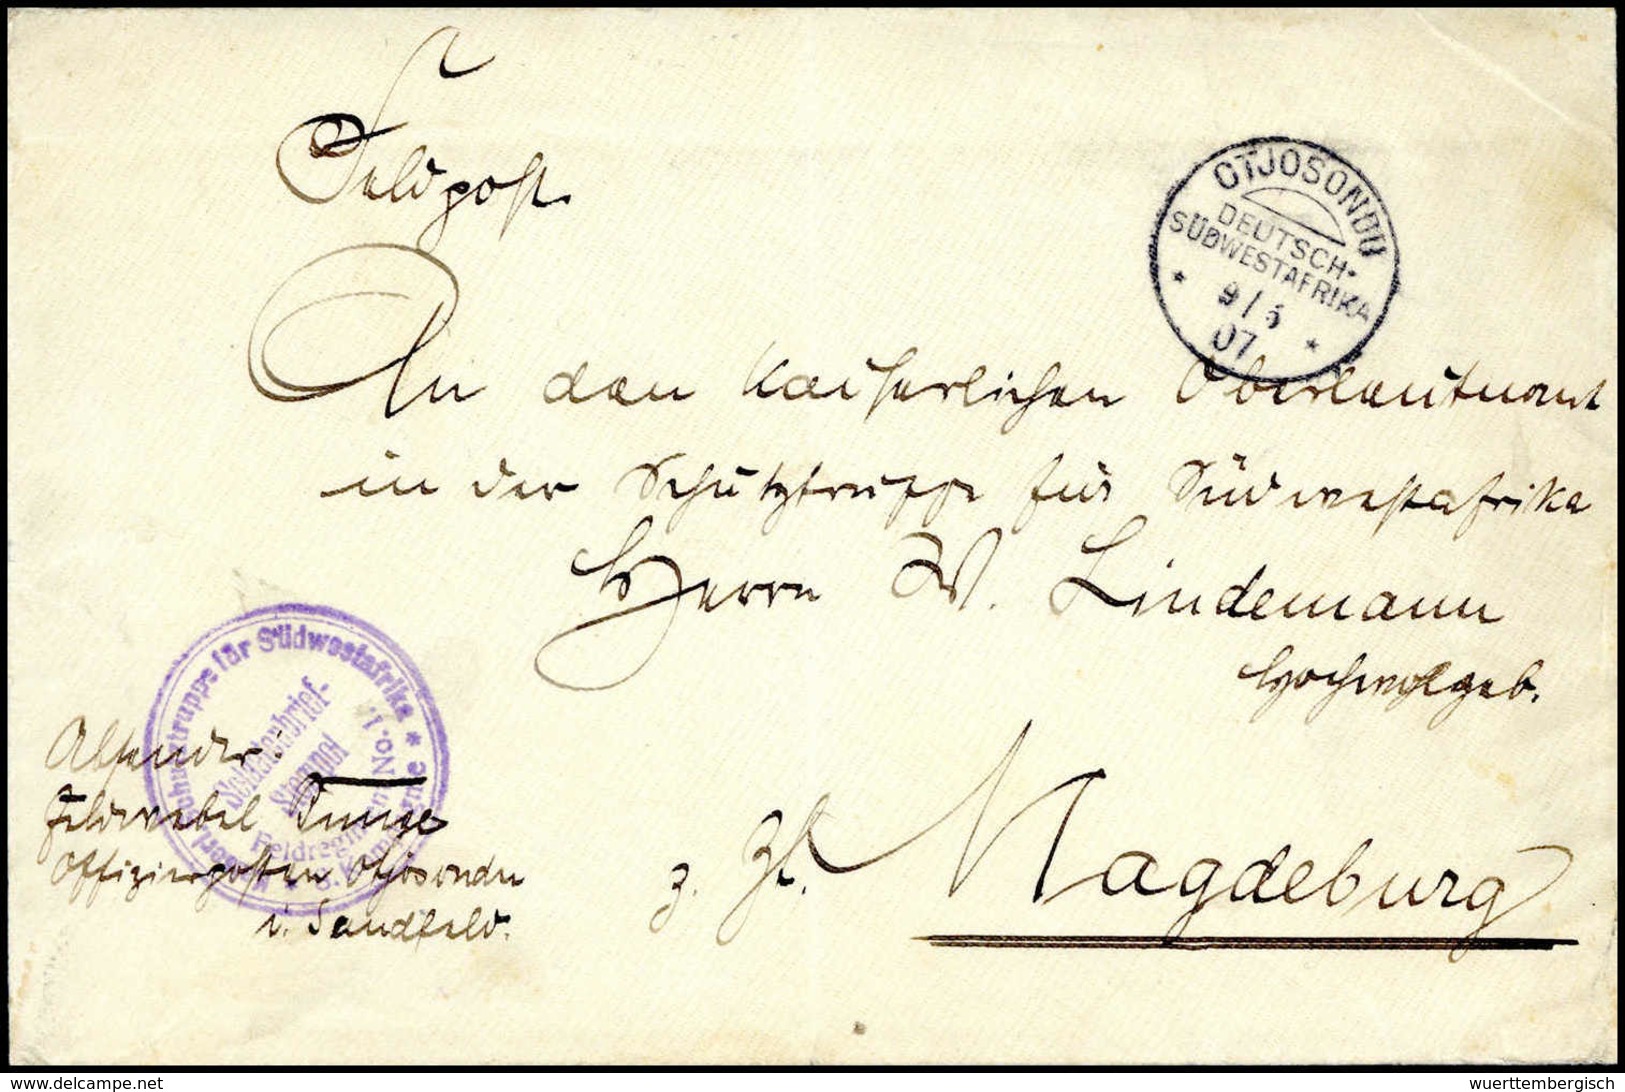 Feldpost.
OTJOSONDU
DEUTSCH-
SÜDWESTAFRIKA
9/5
07
An den Kaiserlichen Oberleutnant
in der Schutztruppe für Südwestafrika
Herrn W. Lindemann
Hochwohlgeb.
z. Zt. Magdeburg
Kaiserl. Schutztruppe für Südwestafrika
Soldatenbrief-
Stempel
Feldregiment No. 1.
Absender:
Feldwebel
Offizierposten Otjosondu
i. Sandfeld.
www.delcampe.net
wuerttembergisch